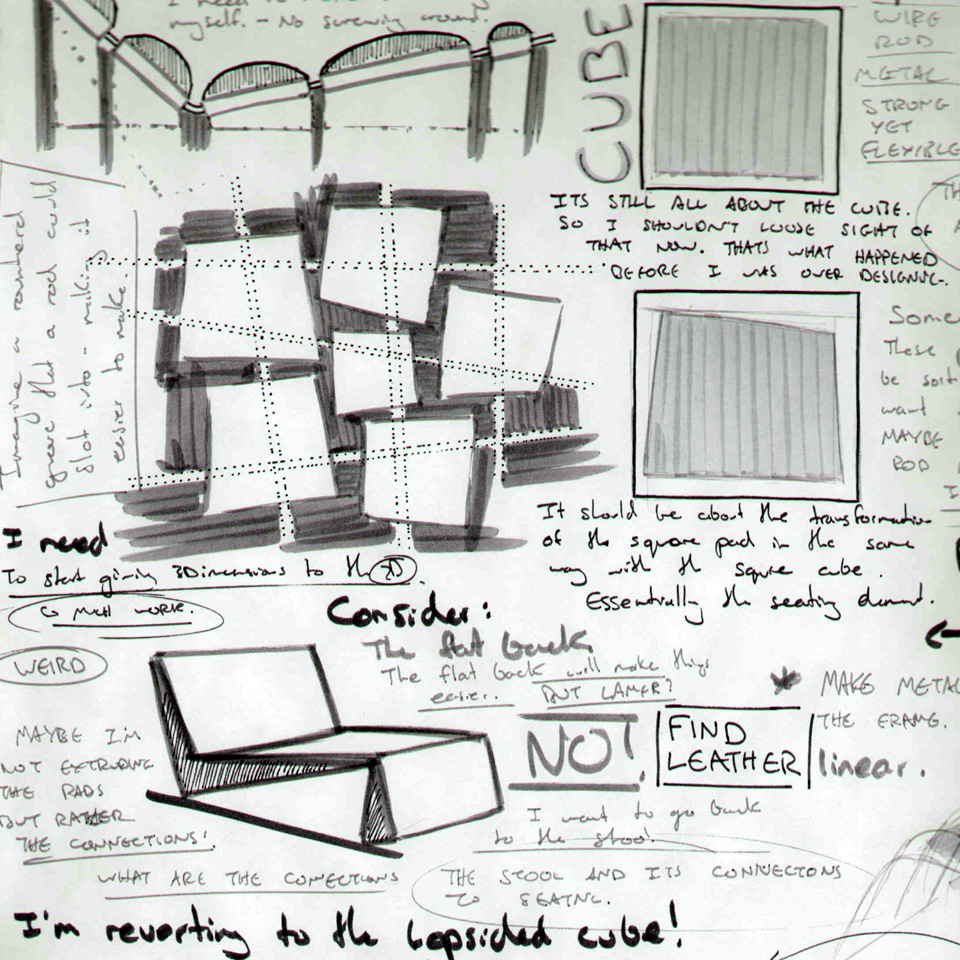 myself. - No screwing around.
CUBE
WIRE
ROD
METAL
STRONG
YET
FLEXIBLE
ITS STILL ALL ABOUT THE CUBE.
SO I SHOULDN'T LOOSE SIGHT OF
THAT NOW. THATS WHAT HAPPENED
BEFORE I WAS OVER DESIGNING.
Imagine a
groove that a rod could
slot into - making it
easier to make.
Some
These
be sort
want
MAYBE
ROD
It should be about the transformation
of the square pad in the same
way with the squre cube.
Essentially the seating element.
I need
To start giving 3Dimensions to the 2D.
SO MUCH WORK.
Consider:
The flat back
The flat back will make things
easier. BUT LAMER?
WEIRD
MAKE METAL
THE FRAME.
linear.
NO!
FIND
LEATHER
MAYBE I'M
NOT EXTRUDING
THE PADS
BUT RATHER
THE CONNECTIONS!
I want to go back
to the stool
WHAT ARE THE CONNECTIONS
THE STOOL AND ITS CONNECTIONS
TO SEATING.
I'm reverting to the lopsided cube!